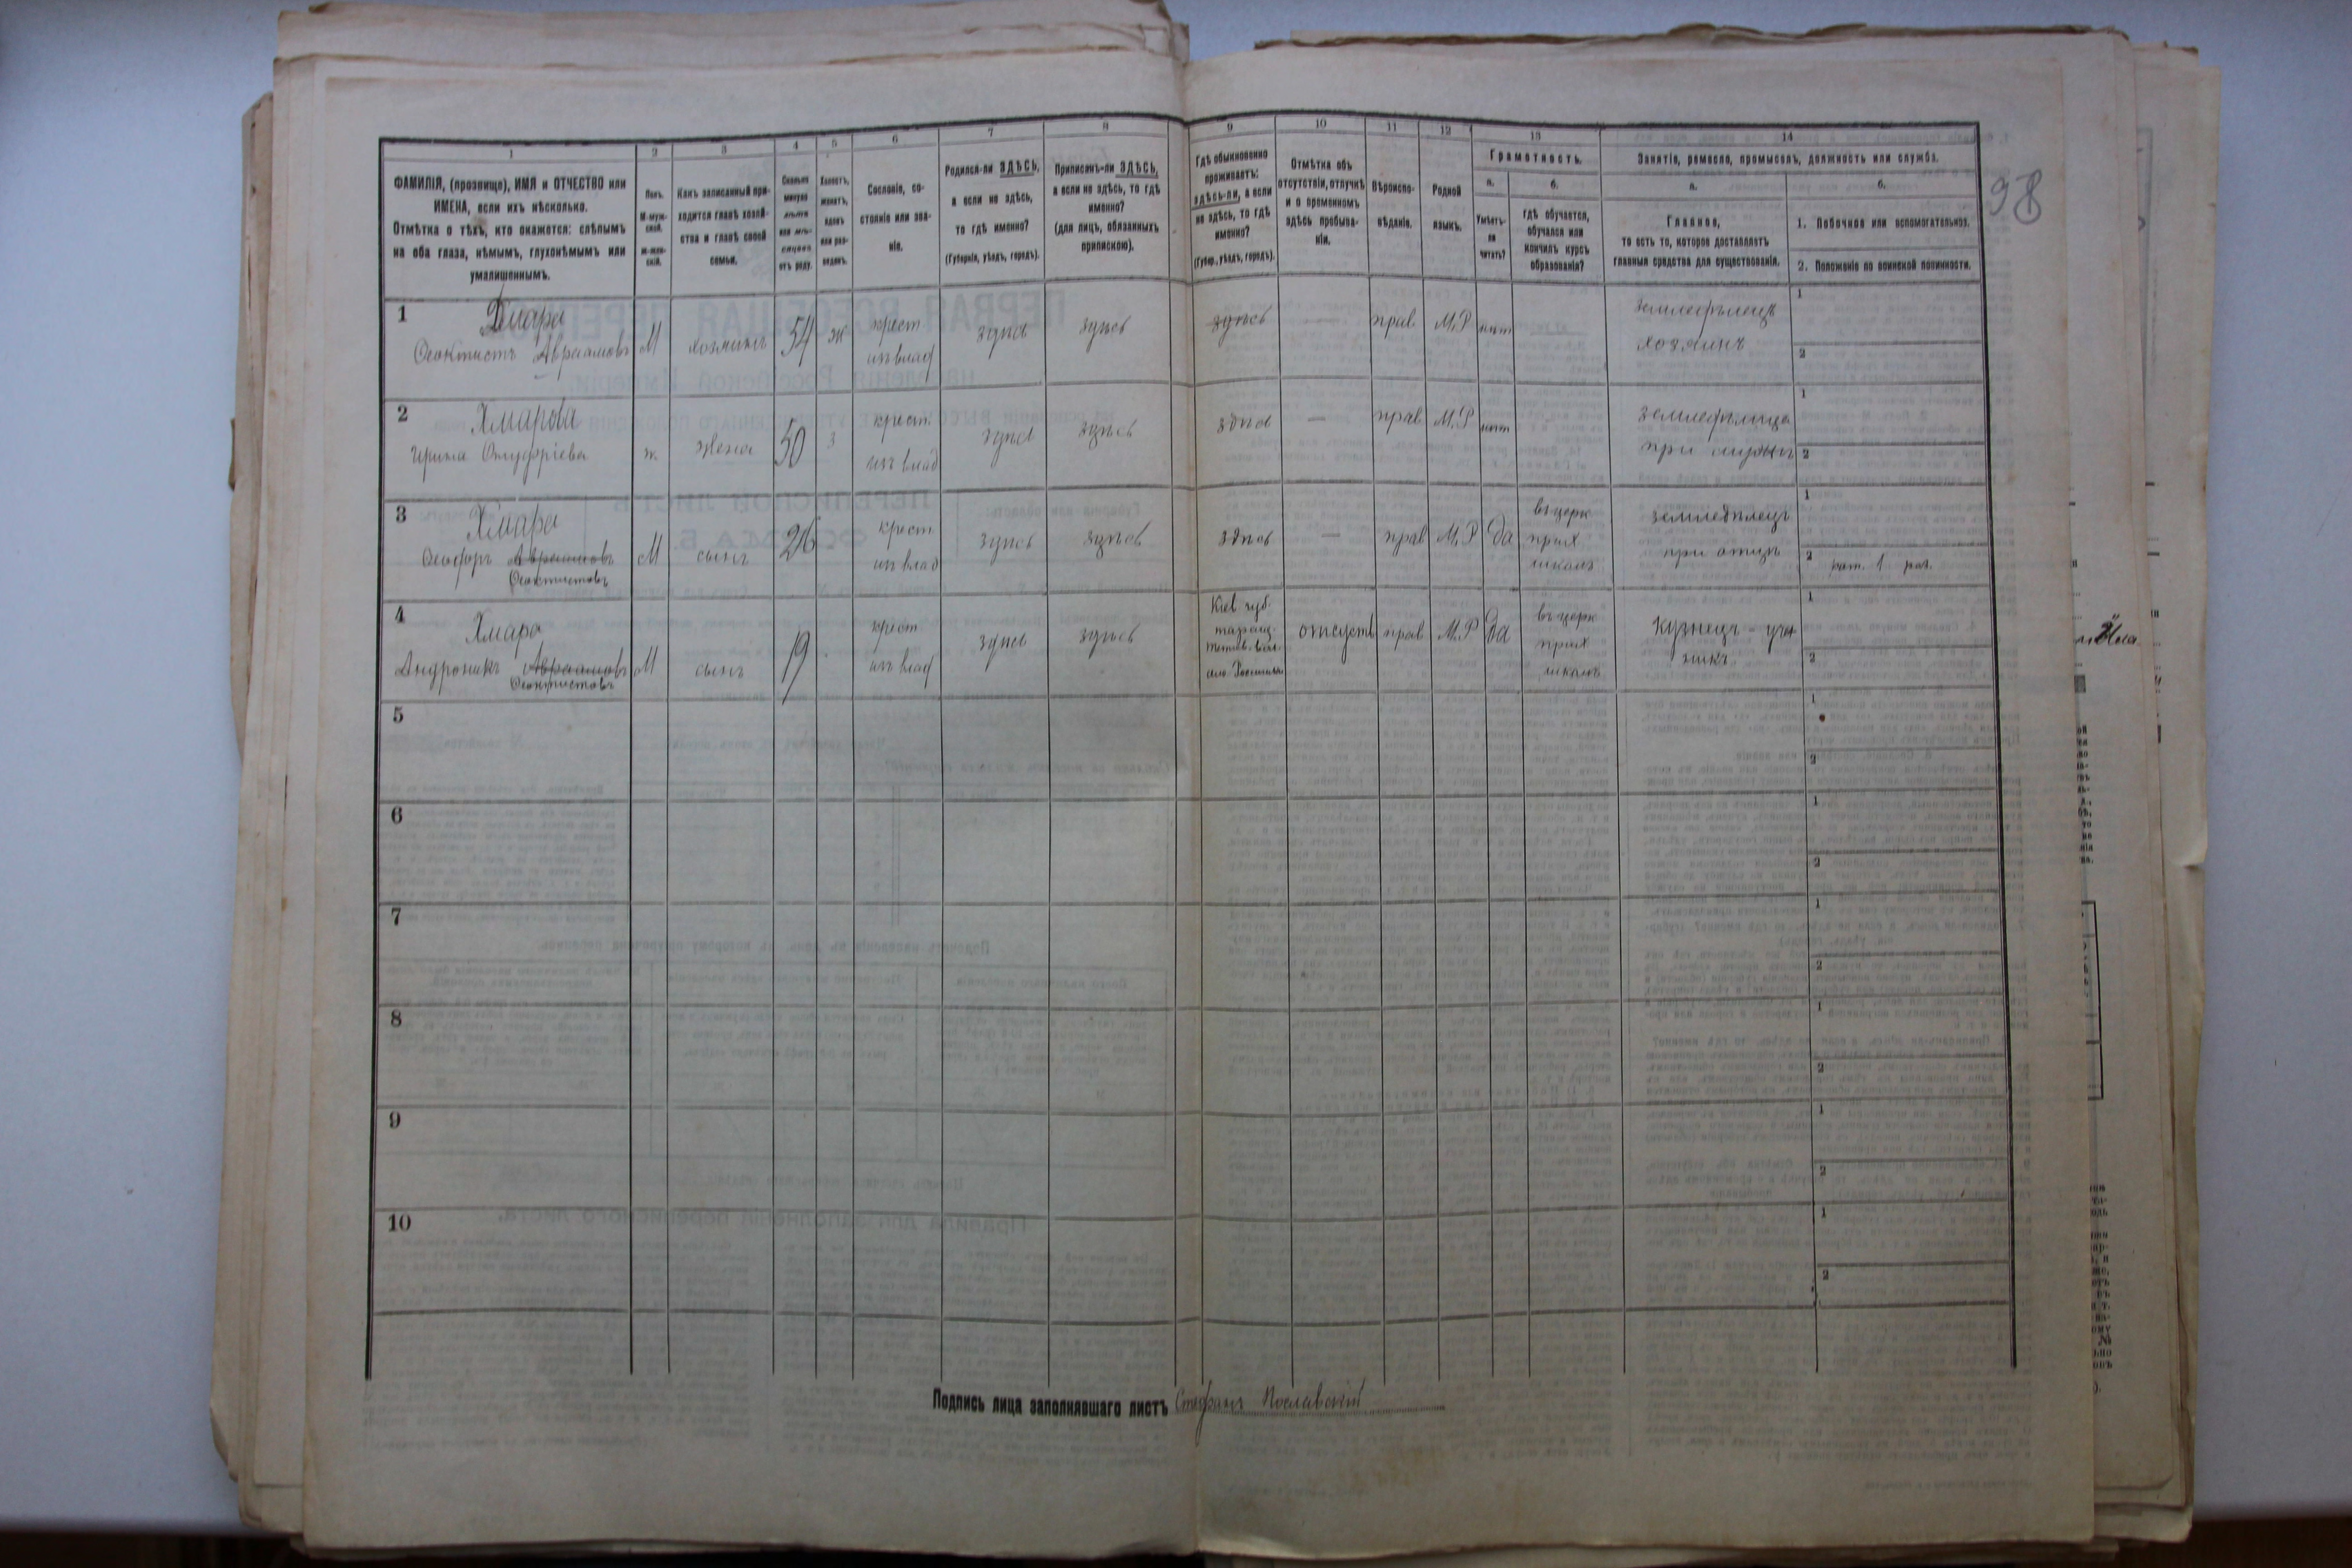 1 2 3 4 5 6 7 8 9 10 11 12 13 14
ФАМИЛІЯ, (прозвище), ИМЯ и ОТЧЕСТВО или
ИМЕНА, если ихъ нѣсколько.
Отмѣтка о тѣхъ, кто окажется: слѣпымъ
на оба глаза, нѣмымъ, глухонѣмымъ или
умалишеннымъ.
Полъ.
М-муж-
ской.
ж-жен-
скій.
Какъ записанный при-
ходится главѣ хозяй-
ства и главѣ своей
семьи.
Сколько
минуло
лѣтъ
или мѣ-
сяцевъ
отъ роду.
Холостъ,
женатъ,
вдовъ
или раз-
веденъ.
Сословіе, со-
стояніе или зва-
ніе.
Родился-ли ЗДѢСЬ,
а если не здѣсь,
то гдѣ именно?
(Губернія, уѣздъ, городъ).
Приписанъ-ли ЗДѢСЬ,
а если не здѣсь, то гдѣ
именно?
(для лицъ, обязанныхъ
припискою).
Гдѣ обыкновенно
проживаетъ:
здѣсь-ли, а если
не здѣсь, то гдѣ
именно?
(Губер., уѣздъ, городъ).
Отмѣтка объ
отсутствіи, отлучкѣ
и о временномъ
здѣсь пребыва-
ніи.
Вѣроиспо-
вѣданіе.
Родной
языкъ.
Грамотность.
а. б.
Умѣетъ-
ли
читать?
гдѣ обучается,
обучался или
кончилъ курсъ
образованія?
Занятіе, ремесло, промыселъ, должность или служба.
а. б.
Главное,
то есть то, которое доставляетъ
главныя средства для существованія.
1. Побочное или вспомогательное.
2. Положеніе по воинской повинности.
98
1 Хмара
Феоктистъ Авраамовъ М хозяинъ 54 ж крест. изъ влад здѣсь здѣсь здѣсь — прав. М.Р нѣт земледѣлецъ
хозяинъ
1
2
2 Хмарова
Ирина Онуфріева ж жена 50 з крест. изъ влад здѣсь здѣсь здѣсь — прав М.Р нѣт земледѣлица
при мужѣ
1
2
3 Хмара
Феодоръ Авраамовъ М сынъ 26 крест изъ влад здѣсь здѣсь здѣсь — прав М.Р да въ церк прих школѣ земледѣлецъ
Феоктистовъ при отцѣ
1
2 рат. 1 раз.
4 Хмара
Андроникъ Авраамовъ М сынъ 19 крест изъ влад здѣсь здѣсь Кіев губ.
Феоктистовъ
таращ.
отсутств прав М.Р да въ церк
прих
школѣ
кузнецъ - уче
никъ
1
2
5 1
2
6 1
2
7 1
2
8 1
2
9 1
2
10 1
2
Подпись лица заполнявшаго листъ Стефанъ Пославскій